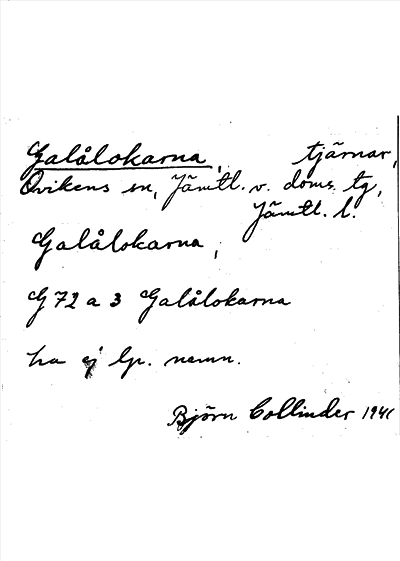 Galålokarna, tjärnar,
Ovikens sn, Jämtl. v. doms. tg,
Jämtl. l.
Galålokarna,
G 72 a 3 Galålokarna
ha ej lp. namn.
Björn Collinder 1941